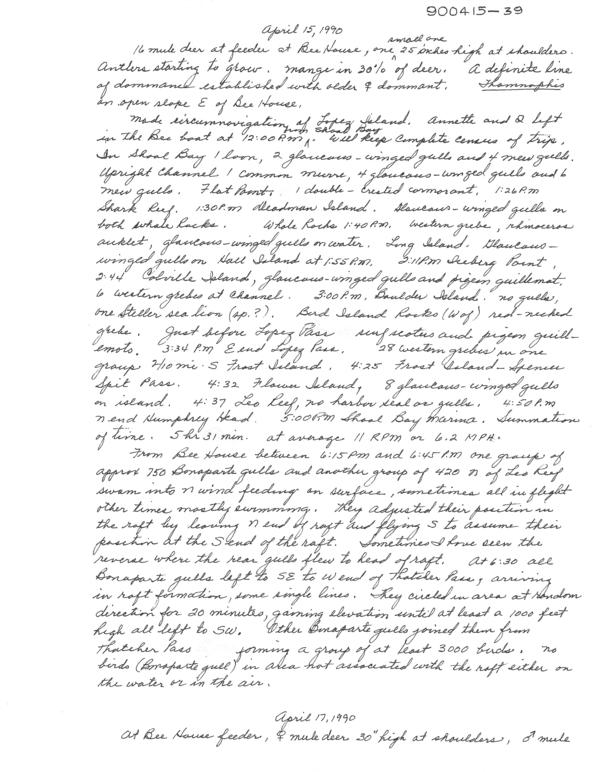 900415-39
April 15, 1990
small one
16 mule deer at feeder at Bee House, one 25 inches high at shoulders.
Antlers starting to grow. mange in 30% of deer. A definite line
of dominance established with older ♀ dominant. Thamnophis
on open slope E of Bee House.
Made circumnavigation of Lopez Island. Annette and I left
from Shoal Bay
in the Bee boat at 12:00 P.M. Will keep complete census of trip.
In Shoal Bay 1 loon, 2 glaucous-winged gulls and 4 mew gulls.
Upright Channel 1 common murre, 4 glaucous-winged gulls and 6
mew gulls. Flat Point, 1 double-crested cormorant, 1:26 P.M
Shark Reef. 1:30 P.M Deadman Island. Glaucous-winged gulls on
both whale Rocks. Whale Rocks 1:40 P.M. western grebe, rhinoceros
auklet, glaucous-winged gulls on water. Long Island. Glaucous-
winged gulls on Hall Island at 1:55 P.M. 2:11 P.M Iceberg Point,
2:44 Colville Island, glaucous-winged gulls and pigeon guillemot.
6 western grebes at channel. 3:00 P.M. Boulder Island. no gulls,
one Steller sea lion (sp.?). Bird Island Rocks (W of) red-necked
grebe. Just before Lopez Pass surf scoters and pigeon guill-
emots. 3:34 P.M E end Lopez Pass. 28 western grebes in one
group 7/10 mi. S Frost Island. 4:25 Frost Island-Spencer
Spit Pass. 4:32 Flower Island, 8 glaucous-winged gulls
on island. 4:37 Leo Reef, no harbor seal or gulls. 4:50 P.M
N end Humphrey Head. 5:00 P.M Shoal Bay Marina. Summation
of time. 5 hr 31 min. at average 11 RPM or 6.2 MPH.
From Bee House between 6:15 pm and 6:45 P.M one group of
approx 750 Bonaparte gulls and another group of 420 N of Leo Reef
swam into N wind feeding on surface, sometimes all in flight
other times mostly swimming. They adjusted their position in
the raft by leaving N end of raft and flying S to assume their
position at the S end of the raft. Sometimes I have seen the
reverse where the rear gulls flew to head of raft. At 6:30 all
Bonaparte gulls left to SE to W end of Thatcher Pass, arriving
in raft formation, some single lines. They circled in area at random
direction for 20 minutes, gaining elevation until at least a 1000 feet
high all left to SW. Other Bonaparte gulls joined them from
Thatcher Pass forming a group of at least 3000 birds. no
birds (Bonaparte gull) in area not associated with the raft either on
the water or in the air.
April 17, 1990
At Bee House feeder, ♀ mule deer 30" high at shoulders, ♂ mule